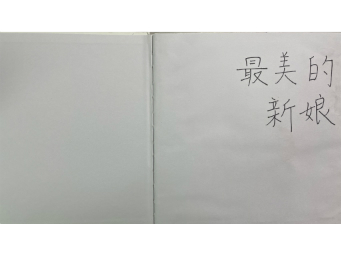 最美的
新娘